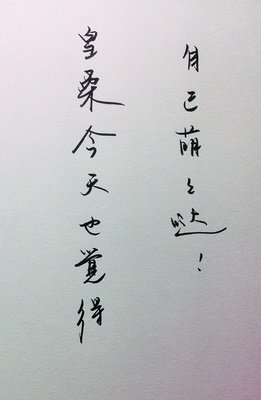 皇桑今天也覺得
自己萌々哒！